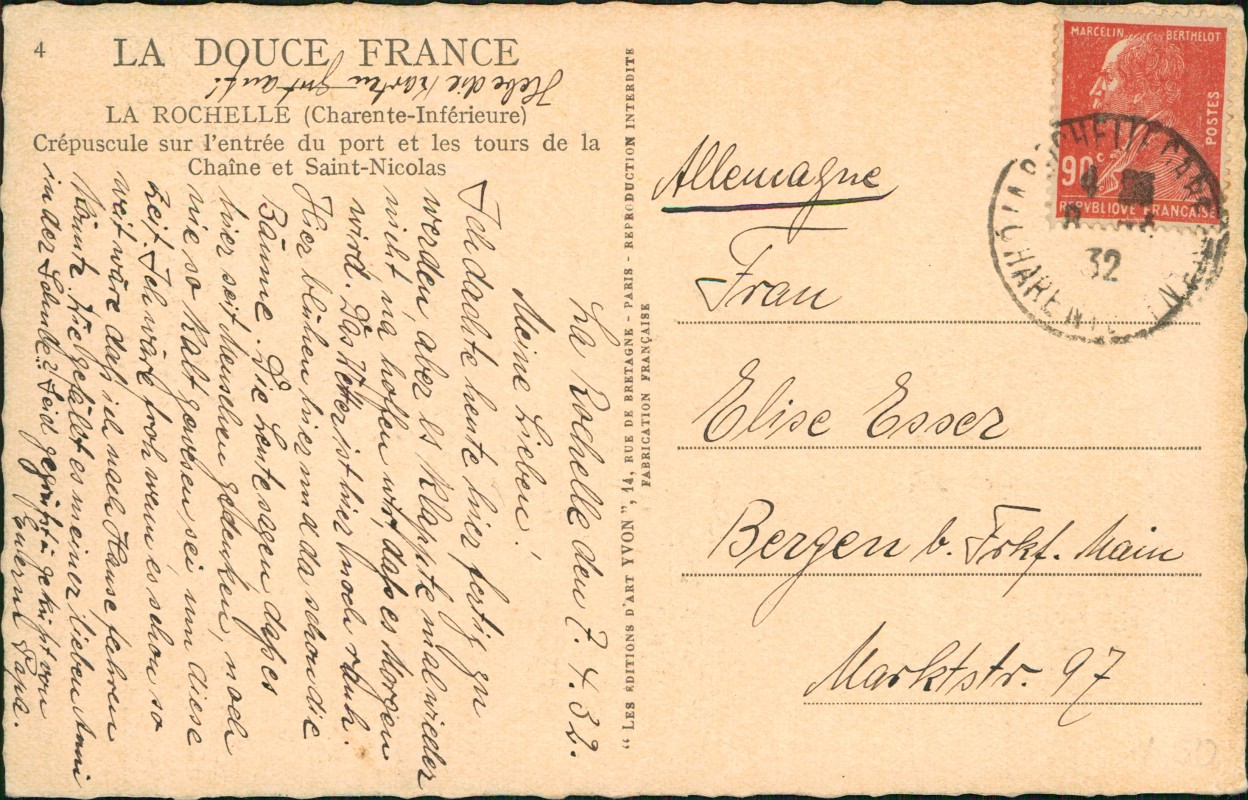 4
LA DOUCE FRANCE
Hebe die Karten gut auf!
LA ROCHELLE (Charente-Inférieure)
Crépuscule sur l'entrée du port et les tours de la
Chaîne et Saint-Nicolas
La Rochelle den 7. 4. 32.
Meine Lieben!
Ich dachte heute hier fertig zu
werden, aber es klappte mal wieder
nicht, na hoffen wir, daß es Morgen
wird. Das Wetter ist hier noch rauh.
Hier blühen hier und da schon die
Bäume. Die Leute sagen, daß es
hier seit menschen gedenken, noch
nie so kalt gewesen sei um diese
Zeit. Ich wäre froh wenn es schon so
weit wäre daß ich nach Hause fahren
könnte. Wie gefällt es meiner lieben Anni
in der Schule? Seid gegrüßt u. geküßt von
Euerm Papa.
"LES ÉDITIONS D'ART YVON", 14, RUE DE BRETAGNE - PARIS - REPRODUCTION INTERDITE
FABRICATION FRANÇAISE
MARCELIN BERTHELOT
POSTES
90c
REPVBLIQVE FRANCAISE
LA ROCHELLE GARE
32
Allemagne
Frau
Elise Esser
Bergen b. Frkf. Main
Marktstr. 97